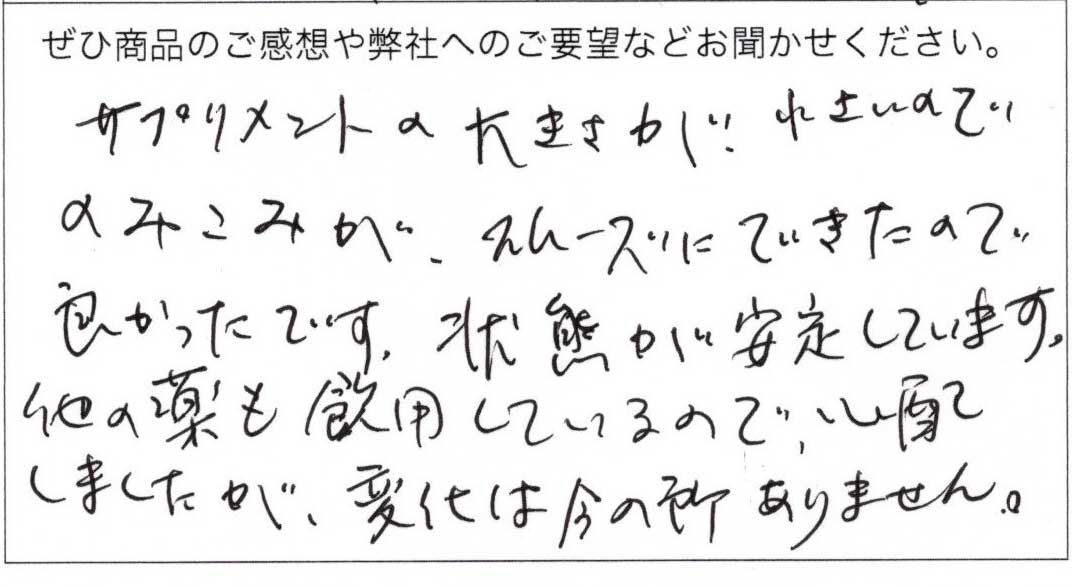 ぜひ商品のご感想や弊社へのご要望などお聞かせください。
サプリメントの大きさが、小さいので
のみこみが、スムーズにできたので
良かったです。状態が安定しています。
他の薬も飲用しているので、心配
しましたが、変化は今の所ありません。